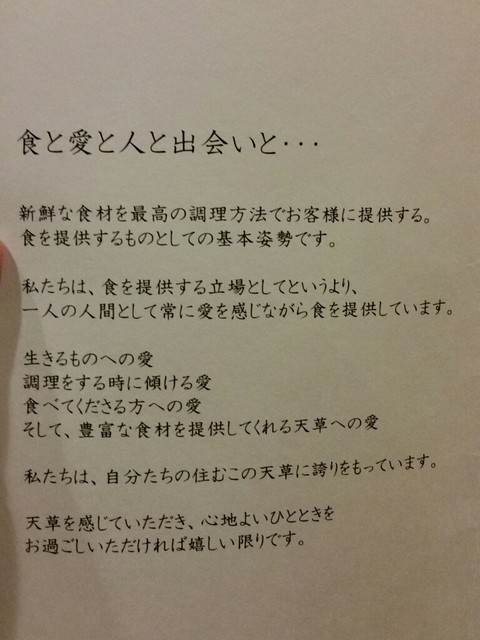 食と愛と人と出会いと・・・
新鮮な食材を最高の調理方法でお客様に提供する。
食を提供するものとしての基本姿勢です。
私たちは、食を提供する立場としてというより、
一人の人間として常に愛を感じながら食を提供しています。
生きるものへの愛
調理をする時に傾ける愛
食べてくださる方への愛
そして、豊富な食材を提供してくれる天草への愛
私たちは、自分たちの住むこの天草に誇りをもっています。
天草を感じていただき、心地よいひとときを
お過ごしいただければ嬉しい限りです。